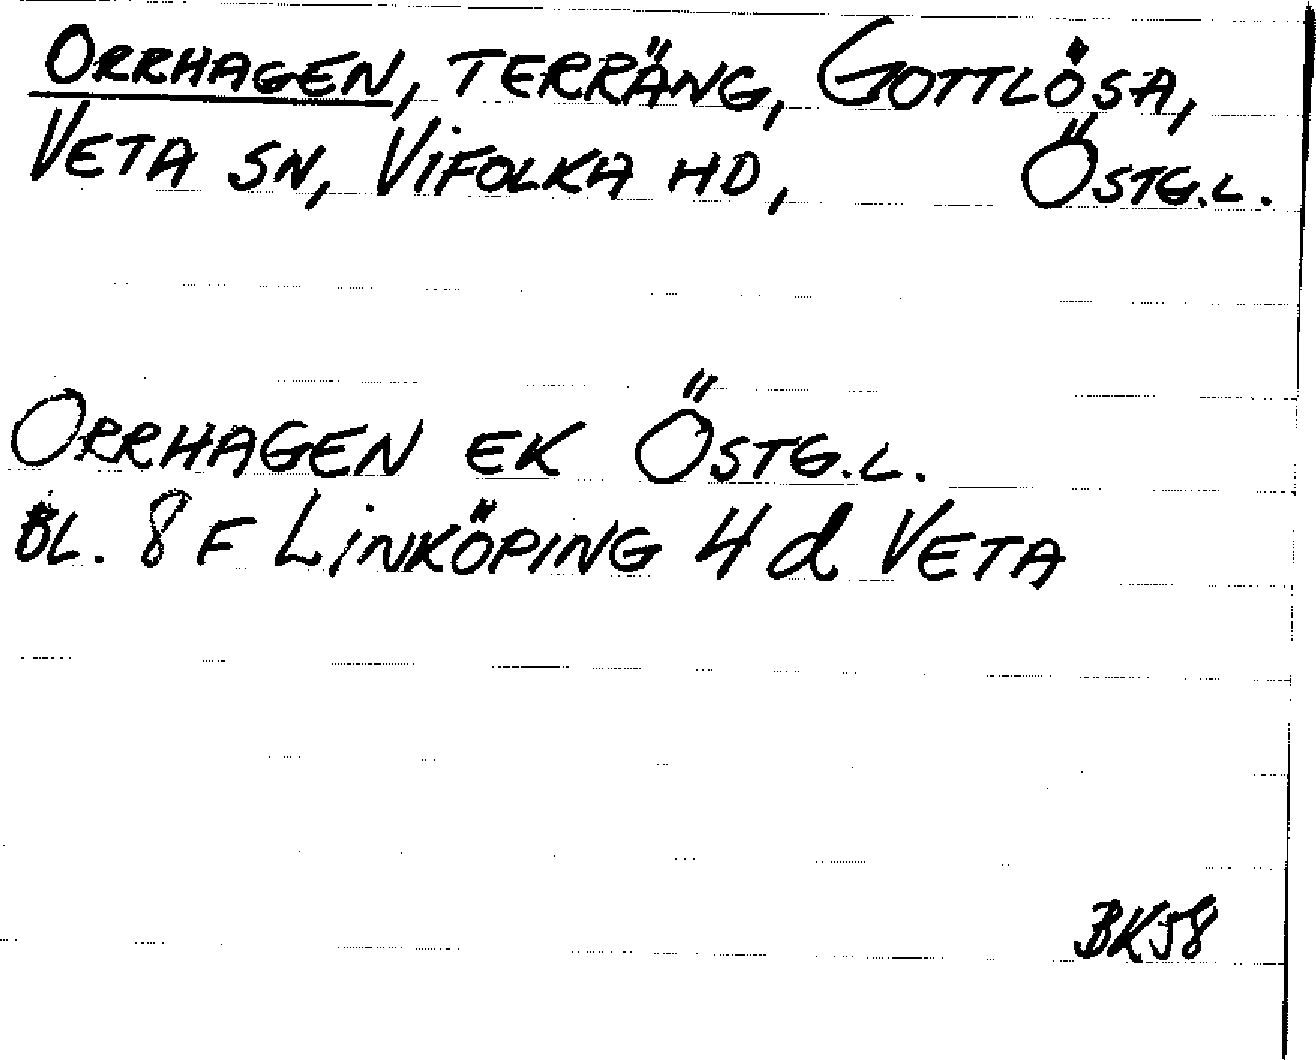 ORRHAGEN, TERRÄNG, GOTTLÖSA,
VETA SN, VIFOLKA HD, ÖSTG.L.
ORRHAGEN EK ÖSTG.L.
BL. 8 F LINKÖPING 4 d VETA
BK58